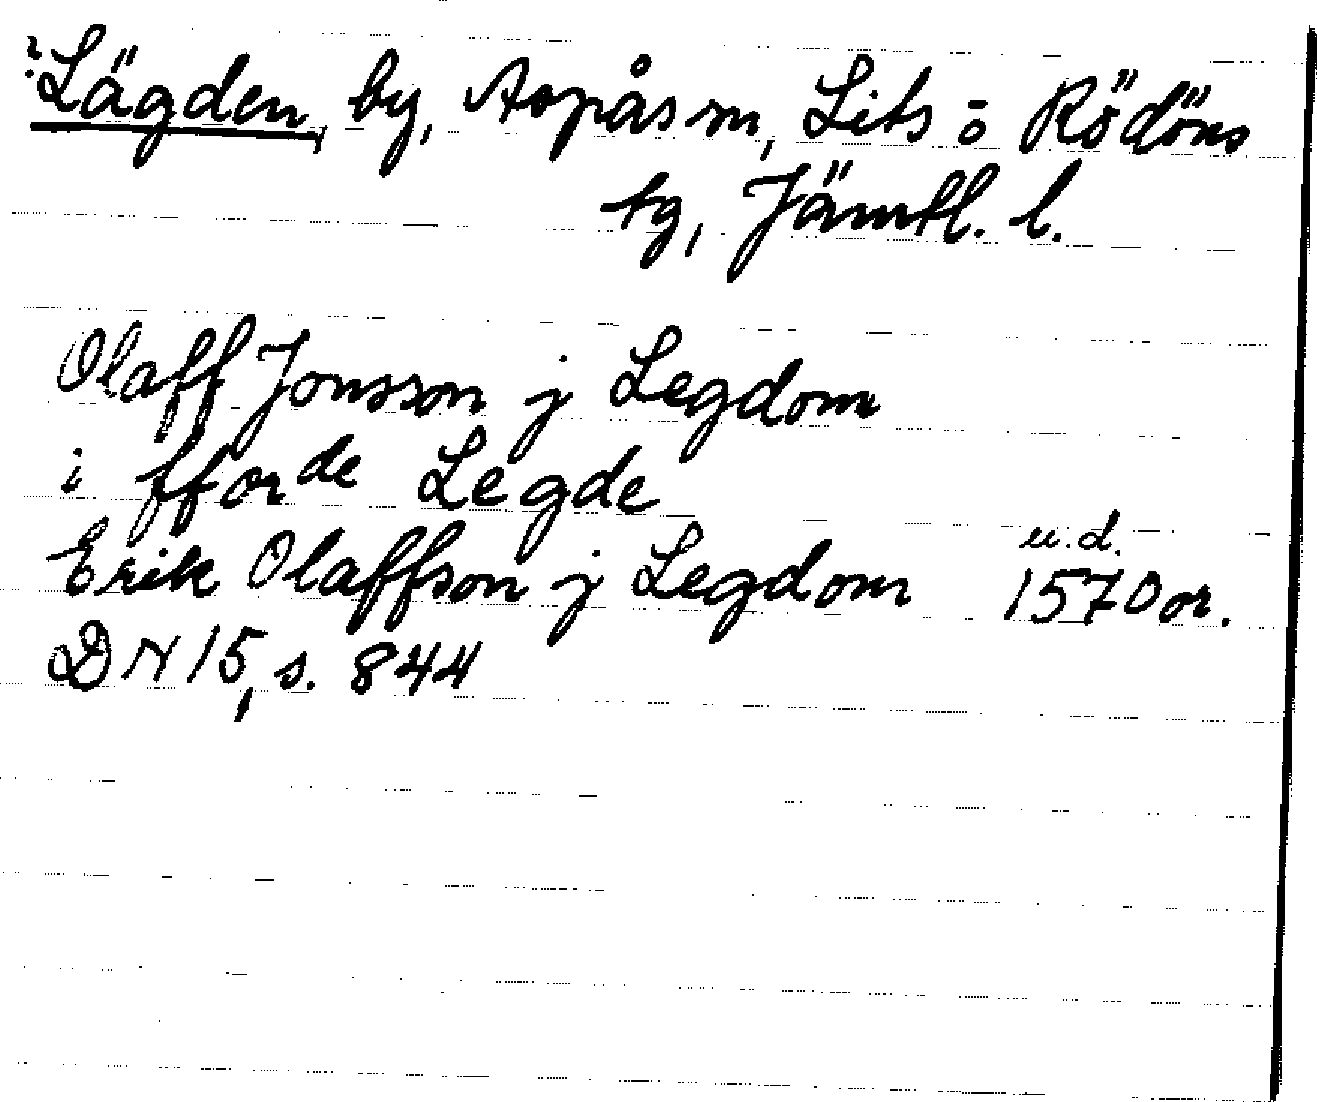 ?Lägden, by, Aspås sn, Lits o Rödöns
tg, Jämtl. l.
Olaff Jonsson j Legdom
i fforde Legde
u.d.
Erik Olaffson j Legdom 1570 or.
DN 15, s. 844